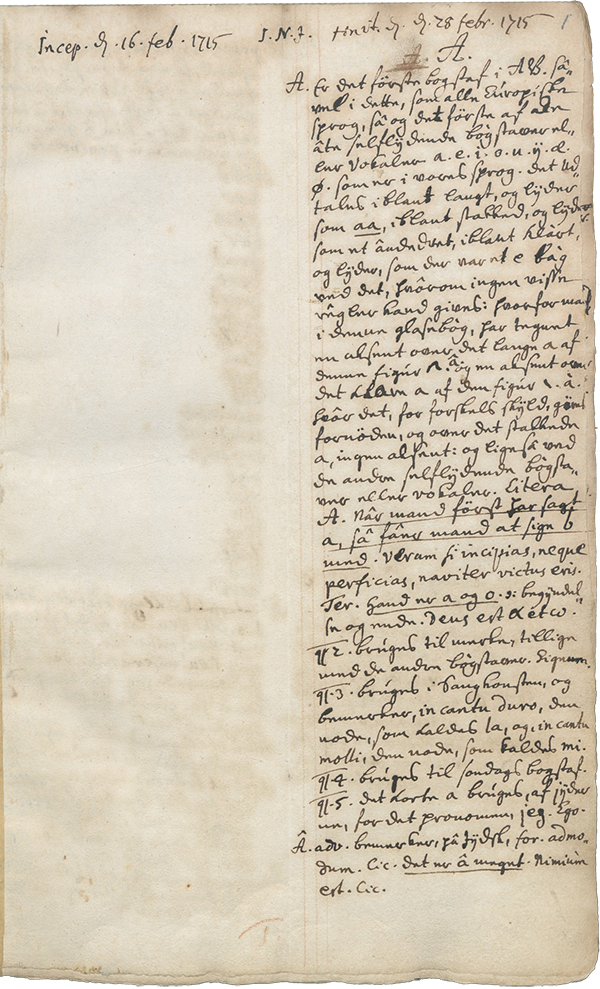 Incep. d. 16. feb. 1715 I. N. J. finit. d. d. 28 febr. 1715 1
A.
A. Er det förste bogstaf i AB. så-
vel i dette, som alle Europiske
sprog, så og det förste af
åte selflydende bogstaver el-
ler vokaler a. e. i. o. u. ÿ. æ.
ø. som er i vores sprog. det ud-
tales iblant langt, og lyder
som aa, iblant stakked, og lyder
som et åndedret, iblant klårt,
og lyder, som der var et e bag
ved det, hvôrom ingen visse
règler kand gives: hvorfor mand
i denne glosebòg, har tegnet
en aksent over det lange a af
denne figur ^. â. og en aksent over
det klare a af den figur `. à.
hvôr det, for forskels skyld, gjöres
fornöden, og over det stakkede
a, ingen aksent: og ligeså ved
de andre selflydende bògsta-
ver eller vokaler. Litera
A. Når mand först har sagt
a, så fâer mand at sige b
med. Verum si incipias, neque
perficias, naviter victus eris.
Ter. Hand er a og o. ɔ: begyndel-
se og ende. Deus est α et ω.
¶ 2. bruges til merke, tillige
med de andre bògstaver. Signum.
¶. 3. brúges i Sangkonsten, og
bemerker, in cantu duro, den
node, som kaldes la, og, in cantu
molli, den node, som kaldes mi.
¶ 4. brúges til söndags bogstaf.
¶. 5. det korte a brúges, af jyder
ne, for det pronomen, jeg. Ego.
Â. adv. bemerker, på jydsk, for. admo-
dum. Cic. det er â meget. Nimium
est. Cic.
1